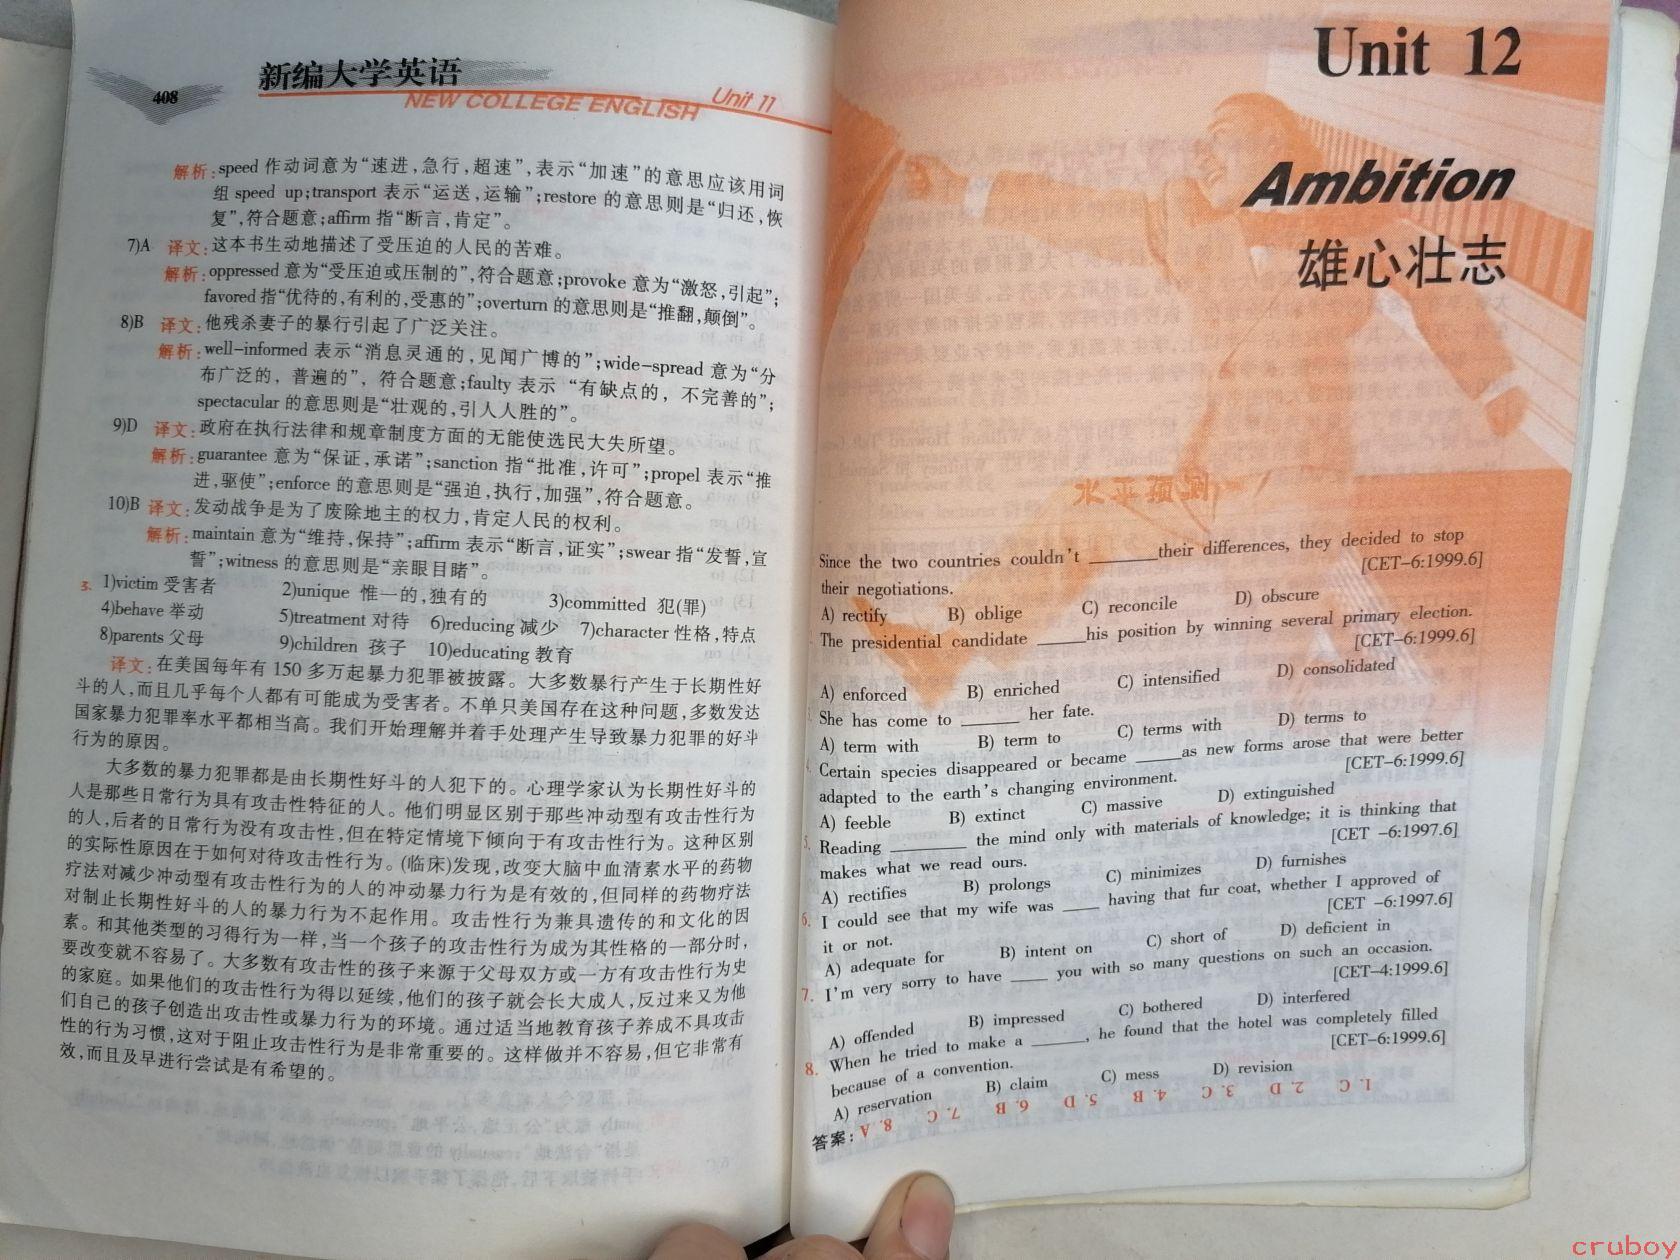 408
新编大学英语
NEW COLLEGE ENGLISH
Unit 11
解析:speed 作动词意为“速进,急行,超速”,表示“加速”的意思应该用词
组 speed up;transport 表示“运送,运输”;restore 的意思则是“归还,恢
复”,符合题意;affirm 指“断言,肯定”。
7)A 译文:这本书生动地描述了受压迫的人民的苦难。
解析:oppressed 意为“受压迫或压制的”,符合题意;provoke 意为“激怒,引起”;
favored 指“优待的,有利的,受惠的”;overturn 的意思则是“推翻,颠倒”。
8)B 译文:他残杀妻子的暴行引起了广泛关注。
解析:well-informed 表示“消息灵通的,见闻广博的”;wide-spread 意为“分
布广泛的,普遍的”,符合题意;faulty 表示“有缺点的,不完善的”;
spectacular 的意思则是“壮观的,引人入胜的”。
9)D 译文:政府在执行法律和规章制度方面的无能使选民大失所望。
解析:guarantee 意为“保证,承诺”;sanction 指“批准,许可”;propel 表示“推
进,驱使”;enforce 的意思则是“强迫,执行,加强”,符合题意。
10)B 译文:发动战争是为了废除地主的权力,肯定人民的权利。
解析:maintain 意为“维持,保持”;affirm 表示“断言,证实”;swear 指“发誓,宣
誓”;witness 的意思则是“亲眼目睹”。
3. 1)victim 受害者 2)unique 惟一的,独有的 3)committed 犯(罪)
4)behave 举动 5)treatment 对待 6)reducing 减少 7)character 性格,特点
8)parents 父母 9)children 孩子 10)educating 教育
译文:在美国每年有 150 多万起暴力犯罪被披露。大多数暴行产生于长期性好
斗的人,而且几乎每个人都有可能成为受害者。不单只美国存在这种问题,多数发达
国家暴力犯罪率水平都相当高。我们开始理解并着手处理产生导致暴力犯罪的好斗
行为的原因。
大多数的暴力犯罪都是由长期性好斗的人犯下的。心理学家认为长期性好斗的
人是那些日常行为具有攻击性特征的人。他们明显区别于那些冲动型有攻击性行为
的人,后者的日常行为没有攻击性,但在特定情境下倾向于有攻击性行为。这种区别
的实际性原因在于如何对待攻击性行为。(临床)发现,改变大脑中血清素水平的药物
疗法对减少冲动型有攻击性行为的人的冲动暴力行为是有效的,但同样的药物疗法
对制止长期性好斗的人的暴力行为不起作用。攻击性行为兼具遗传的和文化的因
素。和其他类型的习得行为一样,当一个孩子的攻击性行为成为其性格的一部分时,
要改变就不容易了。大多数有攻击性的孩子来源于父母双方或一方有攻击性行为史
的家庭。如果他们的攻击性行为得以延续,他们的孩子就会长大成人,反过来又为他
们自己的孩子创造出攻击性或暴力行为的环境。通过适当地教育孩子养成不具攻击
性的行为习惯,这对于阻止攻击性行为是非常重要的。这样做并不容易,但它非常有
效,而且及早进行尝试是有希望的。
Unit 12
Ambition
雄心壮志
水平预测
Since the two countries couldn't ______their differences, they decided to stop
their negotiations. [CET-6:1999.6]
A) rectify B) oblige C) reconcile D) obscure
The presidential candidate ______his position by winning several primary election.
[CET-6:1999.6]
A) enforced B) enriched C) intensified D) consolidated
3. She has come to ______ her fate.
A) term with B) term to C) terms with D) terms to
4. Certain species disappeared or became ______as new forms arose that were better
adapted to the earth's changing environment. [CET-6:1999.6]
A) feeble B) extinct C) massive D) extinguished
5. Reading ______ the mind only with materials of knowledge; it is thinking that
makes what we read ours. [CET -6:1997.6]
A) rectifies B) prolongs C) minimizes D) furnishes
6. I could see that my wife was ____ having that fur coat, whether I approved of
it or not. [CET -6:1997.6]
A) adequate for B) intent on C) short of D) deficient in
7. I'm very sorry to have ____ you with so many questions on such an occasion.
[CET-4:1999.6]
A) offended B) impressed C) bothered D) interfered
8. When he tried to make a ______, he found that the hotel was completely filled
because of a convention. [CET-6:1999.6]
A) reservation B) claim C) mess D) revision
答案: 1. C 2. D 3. C 4. B 5. D 6. B 7. C 8. A
cruboy